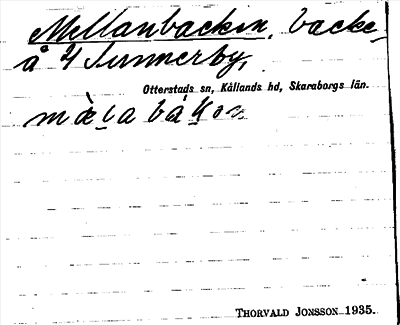 Mellanbacken, backe
å 4 Sunnerby,
Otterstads sn, Kållands hd, Skaraborgs län.
THORVALD JONSSON 1935.